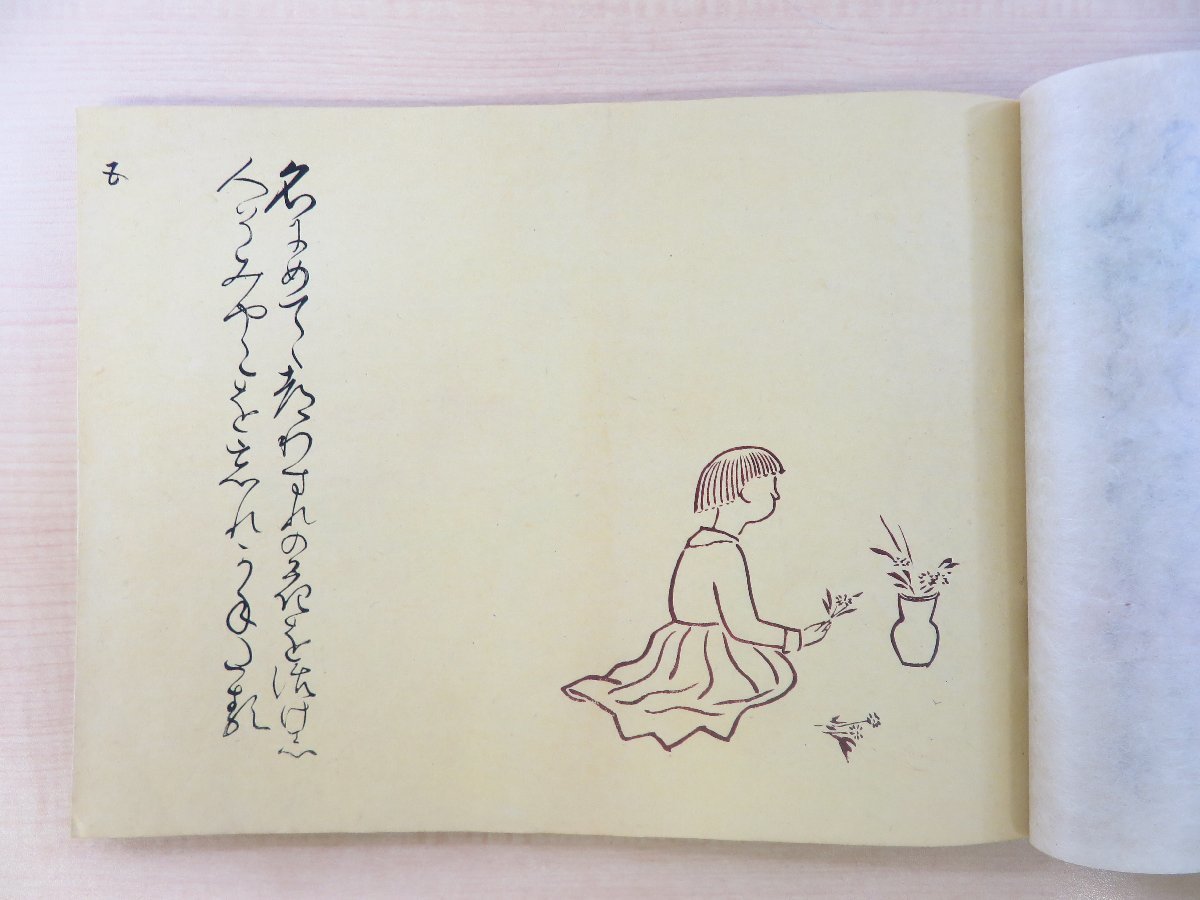 名にめてゝ都わすれの花を活けし
人そみやこを忘れかねたる
五